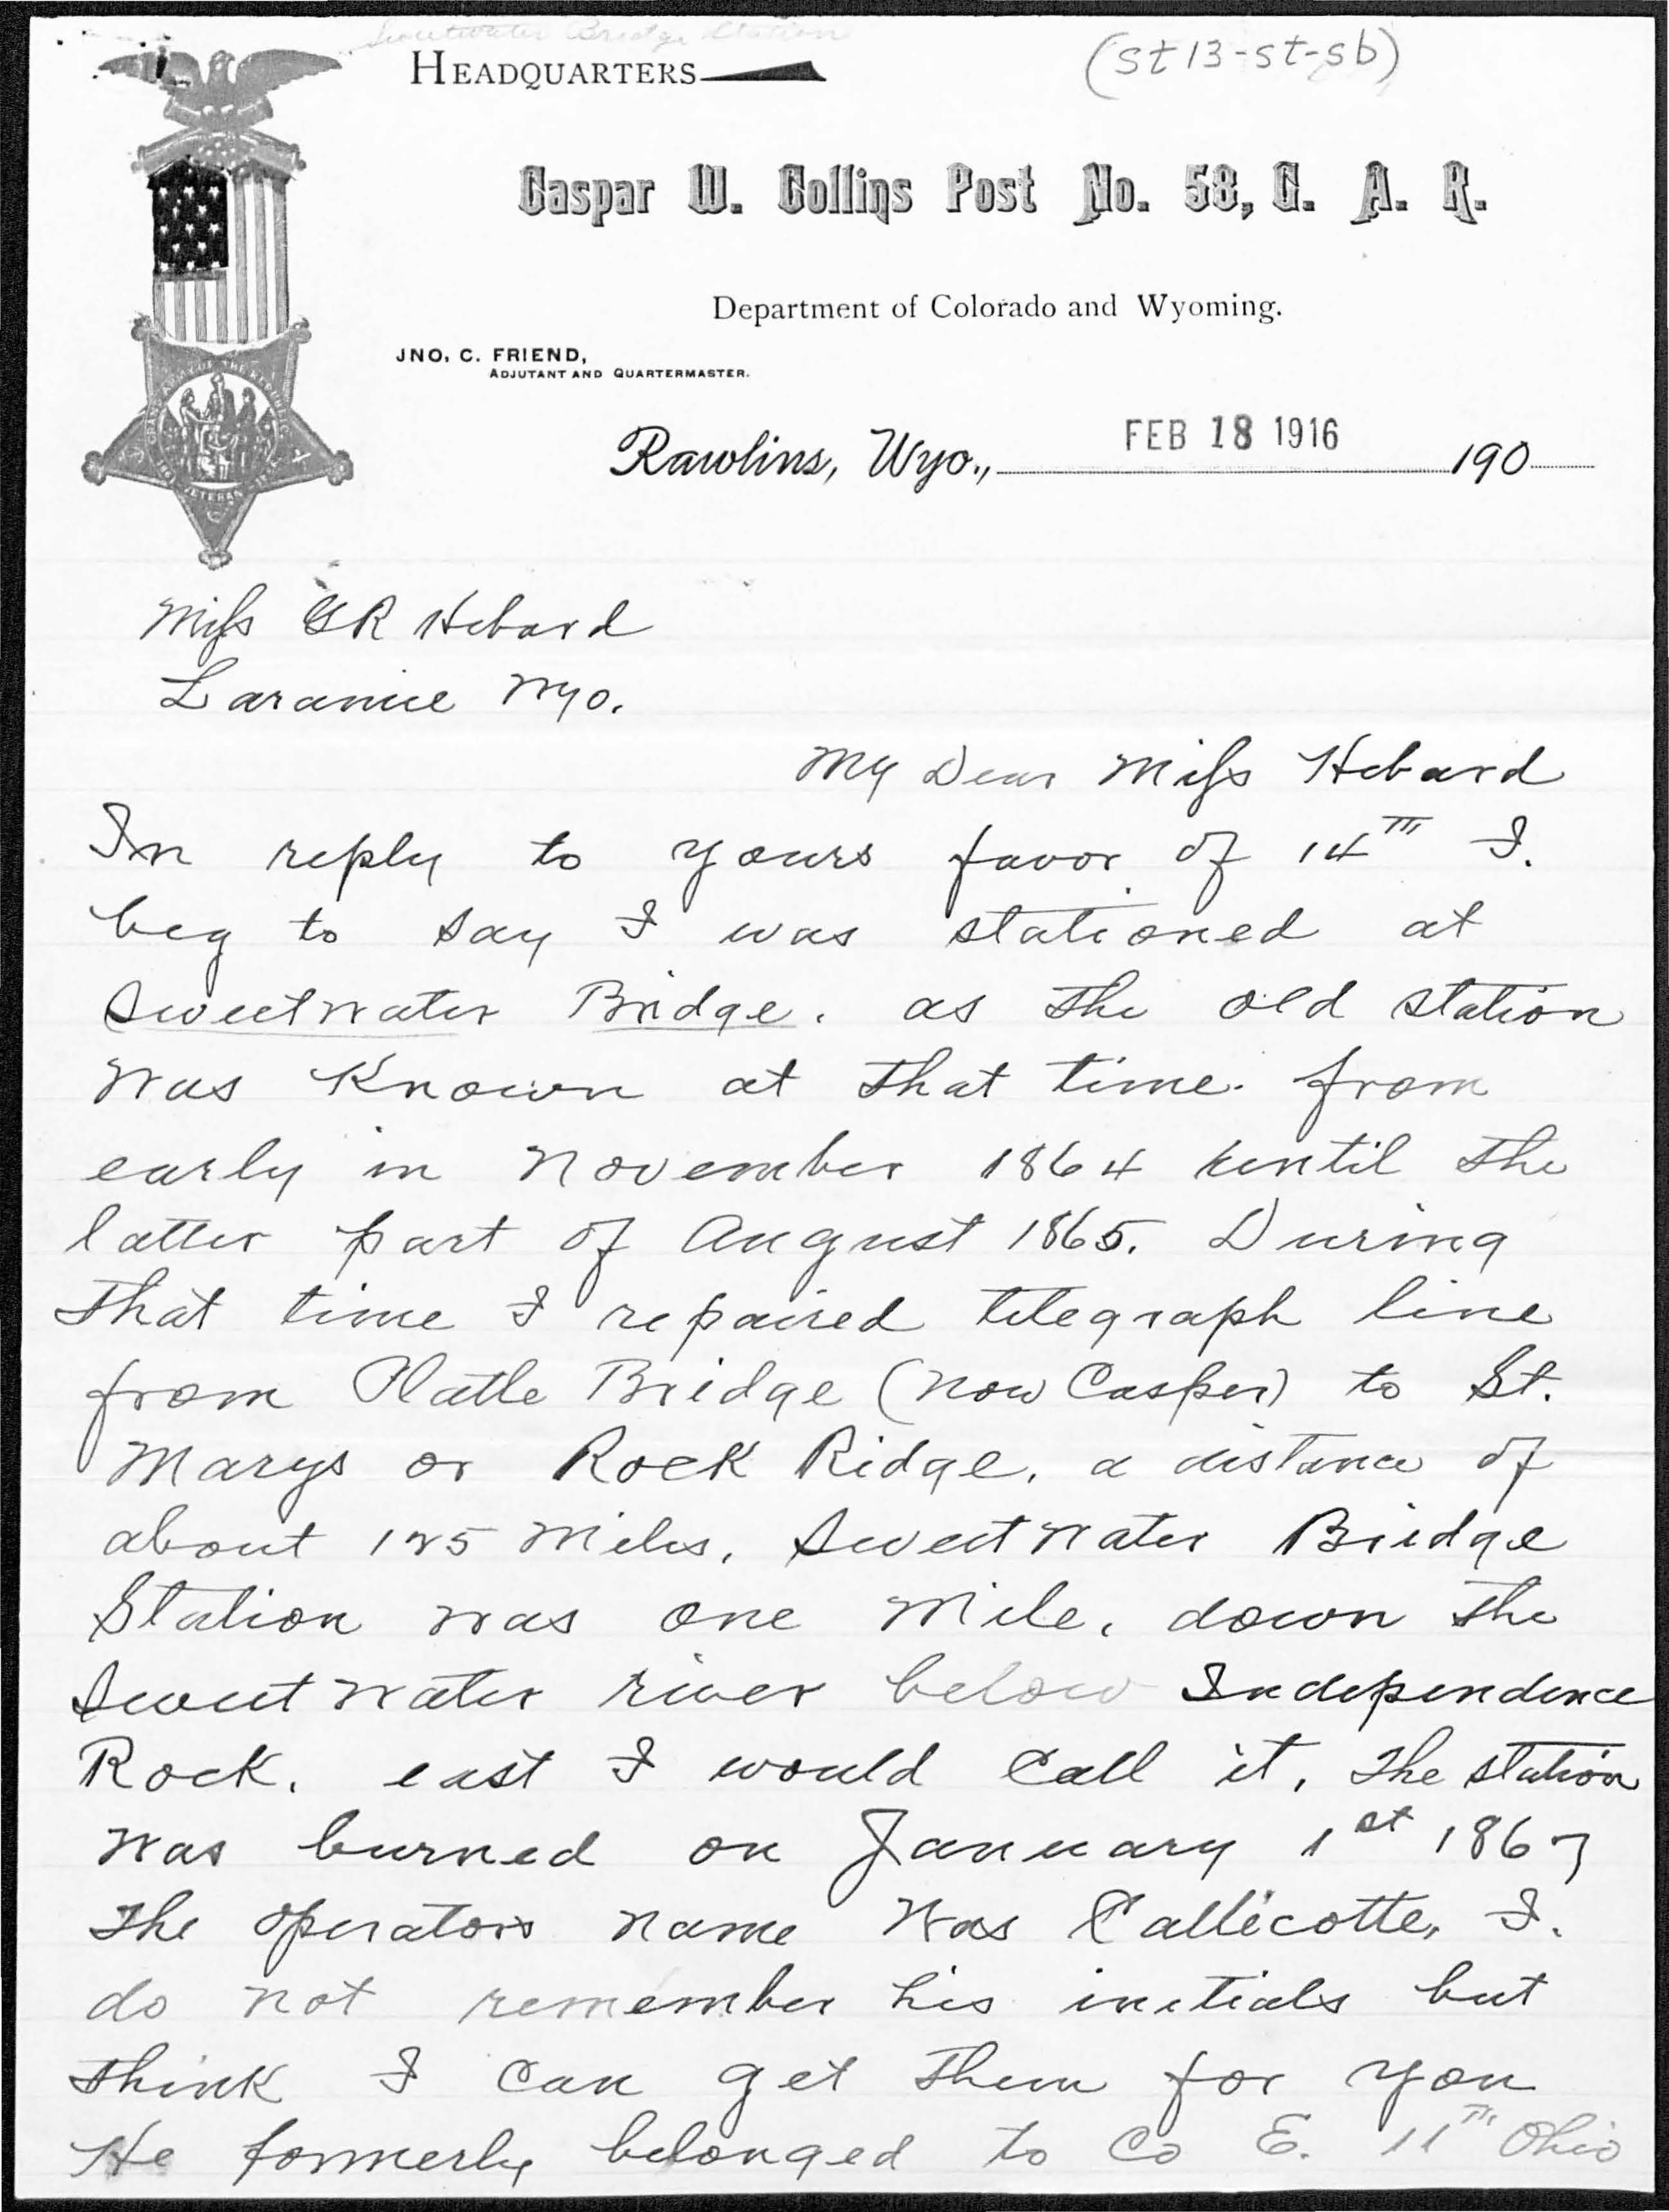 Sweetwater Bridge Station
HEADQUARTERS
(St 13-st-sb)
Caspar W. Collins Post No. 58, G. A. R.
Department of Colorado and Wyoming.
JNO. C. FRIEND,
ADJUTANT AND QUARTERMASTER.
Rawlins, Wyo., FEB 18 1916 190
Miss GR Hebard
Laramie Wyo.
My Dear Miss Hebard
In reply to yours favor of 14TH I.
beg to say I was stationed at
Sweetwater Bridge. as the old station
was Known at that time. from
early in November 1864 until the
latter part of August 1865. During
that time I repaired telegraph line
from Platte Bridge (now Casper) to St.
Marys or Rock Ridge, a distance of
about 125 Miles, Sweetwater Bridge
Station was one Mile, down the
Sweetwater river below Independence
Rock, east I would Call it, The station
was burned on January 1st 1867
The operators name was Callicotte, I.
do not remember his initials but
think I can get them for you
He formerly belonged to Co E. 11TH Ohio